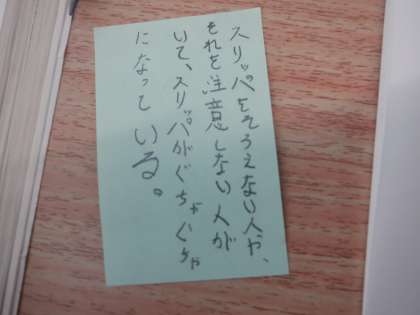 スリッパをそろえない人や、
それを注意しない人が
いて、スリッパがぐちゃぐちゃ
になっている。